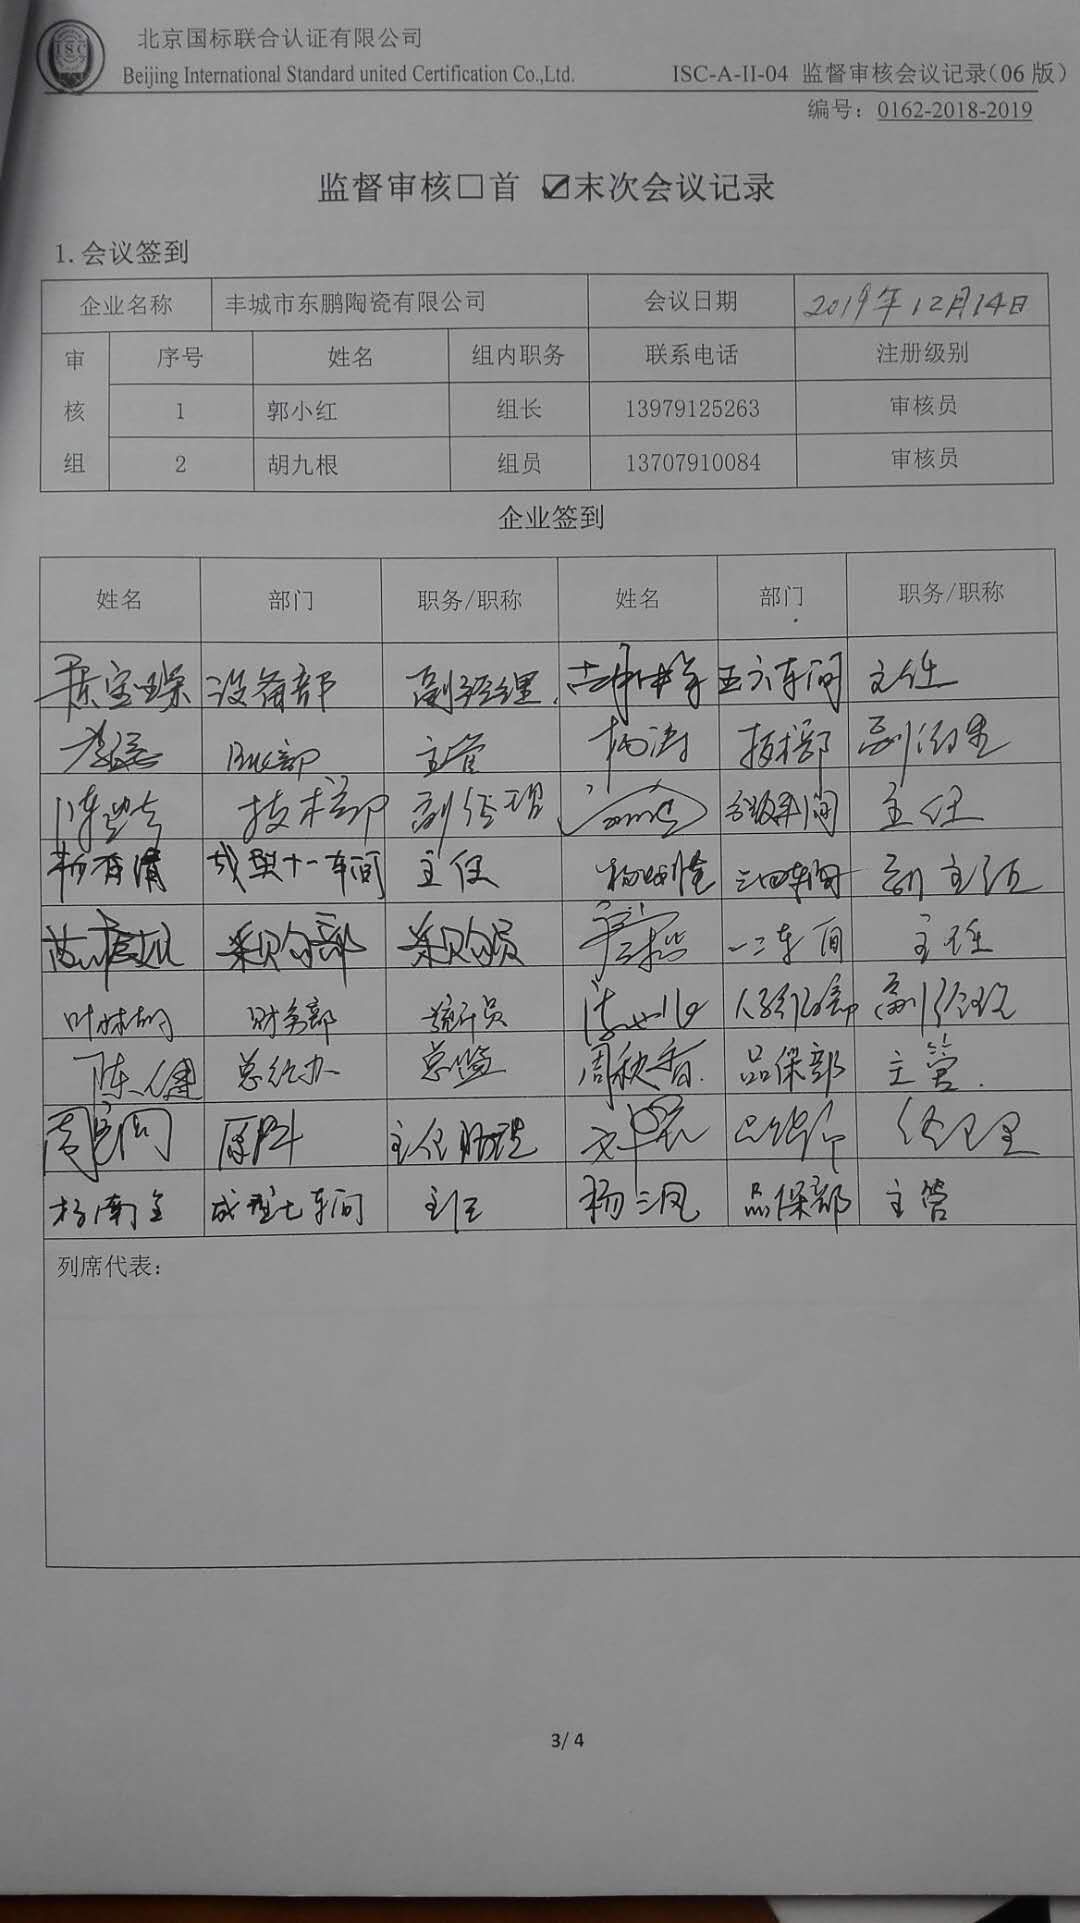 北京国标联合认证有限公司
Beijing International Standard united Certification Co.,Ltd.
ISC-A-II-04 监督审核会议记录(06 版)
编号: 0162-2018-2019
监督审核□首 ☑末次会议记录
1.会议签到
企业名称 丰城市东鹏陶瓷有限公司 会议日期 2019年12月14日
审核组 序号 姓名 组内职务 联系电话 注册级别
1 郭小红 组长 13979125263 审核员
2 胡九根 组员 13707910084 审核员
企业签到
姓名 部门 职务/职称 姓名 部门 职务/职称
设备部 副经理 五六车间 主任
主管 技术部 副经理
技术部 副经理 车间 主任
成型十一车间 主任 三四车间 副主任
采购部 采购员 一二车间 主任
财务部 统计员 副经理
陈健 总经办 总监 周秋香 品保部 主管
原料 主任助理 经理
杨南全 成型七车间 主任 杨三凤 品保部 主管
列席代表:
3/ 4